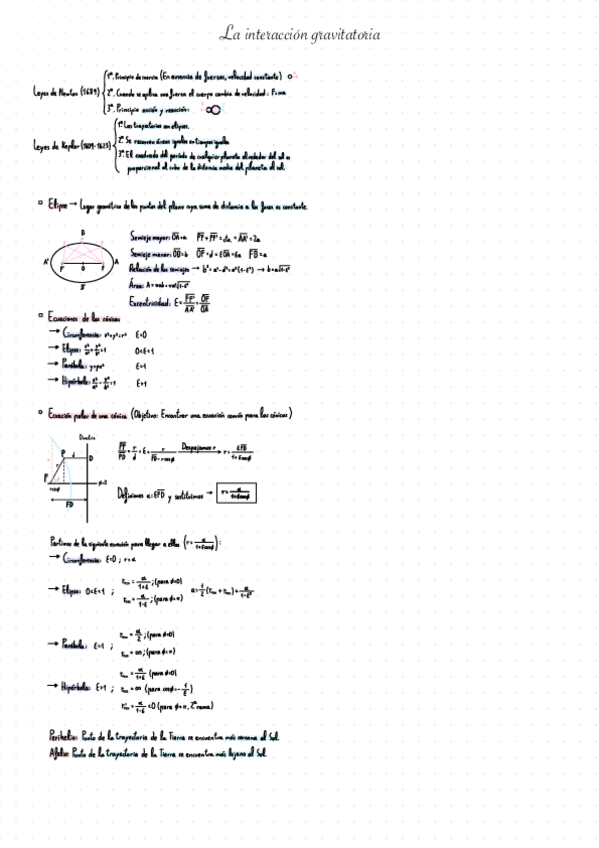 La interacción gravitatoria
Leyes de Newton (1687)
1ª. Principio de inercia (En ausencia de fuerzas, velocidad constante)
2ª. Cuando se aplica una fuerza el cuerpo cambia de velocidad: F=ma
3ª. Principio acción y reacción:
Leyes de Kepler (1609-1623)
1ª Las trayectorias son elipses.
2ª Se recorren áreas iguales en tiempos iguales
3ª El cuadrado del período de cualquier planeta alrededor del sol es
proporcional al cubo de la distancia media del planeta al sol.
Elipse → Lugar geométrico de los puntos del plano cuya suma de distancia a los focos es constante.
B
A' F' O F A
B'
Semieje mayor: OA=a
Semieje menor: OB=b
Relación de los semiejes → b²=a²-d²=a²(1-ε²) → b=a√1-ε²
Área: A=πab=πa²√1-ε²
Excentricidad: ε=FF'/AA'=OF/OA
Ecuaciones de las cónicas
→ Circunferencia: x²+y²=r² ε=0
→ Elipse: x²/a²+y²/b²=1 0<ε<1
→ Parábola: y=px² ε=1
→ Hipérbola: x²/a²-y²/b²=1 ε>1
Ecuación polar de una cónica (Objetivo: Encontrar una ecuación común para las cónicas)
Directriz
P d D
r
F
rcosφ φ=0
FD
PF/PD=r/d=ε=r/(FD-rcosφ) Despejamos r → r=εFD/(1+εcosφ)
Definimos α=εFD y sustituimos → r=α/(1+εcosφ)
Partimos de la siguiente ecuación para llegar a ellas (r=α/(1+εcosφ)):
→ Circunferencia: ε=0 ; r=α
→ Elipse: 0<ε<1 ; rmin=α/(1+ε) ;(para φ=0)
rmax=α/(1-ε) ;(para φ=π)
a=1/2(rmin+rmax)=α/(1-ε²)
→ Parábola: ε=1 ; rmin=α/2 ;(para φ=0)
rmax=∞ ;(para φ=π)
→ Hipérbola: ε>1 ; rmin=α/(1+ε) (para φ=0)
rmax=∞ (para cosφ=-1/ε)
α/(1-ε)<0 (para φ=π, 2ª rama)
Perihelio: Punto de la trayectoria de la Tierra se encuentra más cercana al Sol.
Afelio: Punto de la trayectoria de la Tierra se encuentra más lejano al Sol.